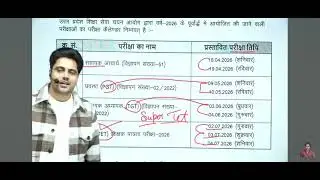 उत्तर प्रदेश शिक्षा सेवा चयन आयोग द्वारा वर्ष-2026 के पूर्वार्द्ध में आयोजित की जाने वाली
परीक्षाओं का परीक्षा कैलेण्डर निम्नवत् है :-
क्र. सं. परीक्षा का नाम प्रस्तावित परीक्षा तिथि
सहायक आचार्य (विज्ञापन संख्या-51)
18.04.2026 (शनिवार)
19.04.2026
प्रवक्ता (PGT) (विज्ञापन संख्या-02/2022)
09.05.2026 (शनिवार)
10.05.2026
(TGT) (विज्ञापन संख्या-
2022)
03.06.2026 (बुधवार)
04.06.2026 (गुरुवार)
Super Tet
शिक्षक पात्रता परीक्षा-2026
02.07.2026 (गुरुवार)
03.07.2026
04.07.2026 (शनिवार)